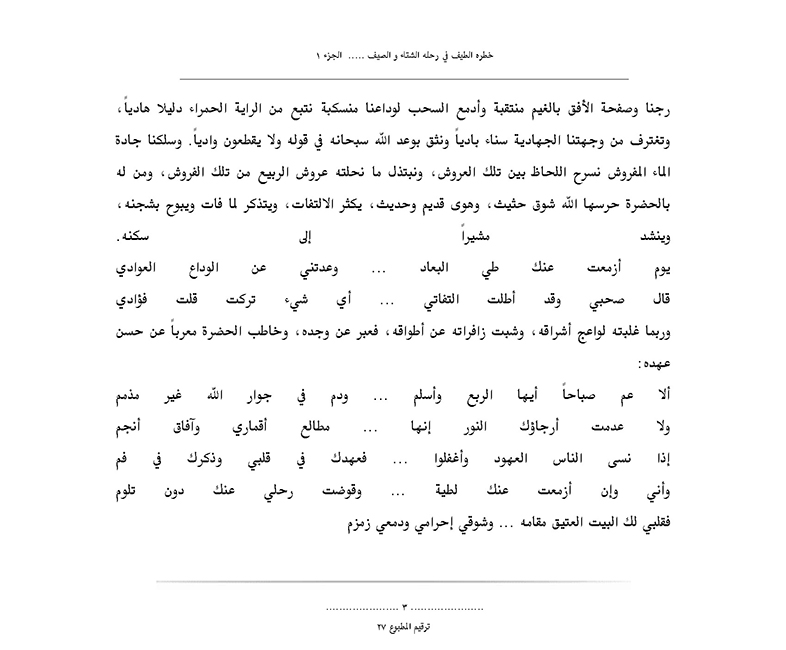 خطره الطيف في رحله الشتاء و الصيف ..... الجزء ١
رجنا وصفحة الأفق بالغيم منتقبة وأدمع السحب لوداعنا منسكبة نتبع من الراية الحمراء دليلا هادياً،
وتغترف من وجهتنا الجهادية سناء بادياً ونثق بوعد الله سبحانه في قوله ولا يقطعون وادياً. وسلكنا جادة
الماء المفروش نسرح اللحاظ بين تلك العروش، ونبتذل ما نحلته عروش الربيع من تلك الفروش، ومن له
بالحضرة حرسها الله شوق حثيث، وهوى قديم وحديث، يكثر الالتفات، ويتذكر لما فات ويبوح بشجنه،
وينشد مشيراً إلى سكنه.
يوم أزمعت عنك طي البعاد ... وعدتني عن الوداع العوادي
قال صحبي وقد أطلت التفاتي ... أي شيء تركت قلت فؤادي
وربما غلبته لواعج أشراقه، وشبت زافراته عن أطواقه، فعبر عن وجده، وخاطب الحضرة معرباً عن حسن
عهده:
ألا عم صباحاً أيها الربع وأسلم ... ودم في جوار الله غير مذمم
ولا عدمت أرجاؤك النور إنها ... مطالع أقماري وآفاق أنجم
إذا نسى الناس العهود وأغفلوا ... فعهدك في قلبي وذكرك في فم
وأني وإن أزمعت عنك لطية ... وقوضت رحلي عنك دون تلوم
فقلبي لك البيت العتيق مقامه ... وشوقي إحرامي ودمعي زمزم
...................... ٣ ......................
ترقيم المطبوع ٢٧